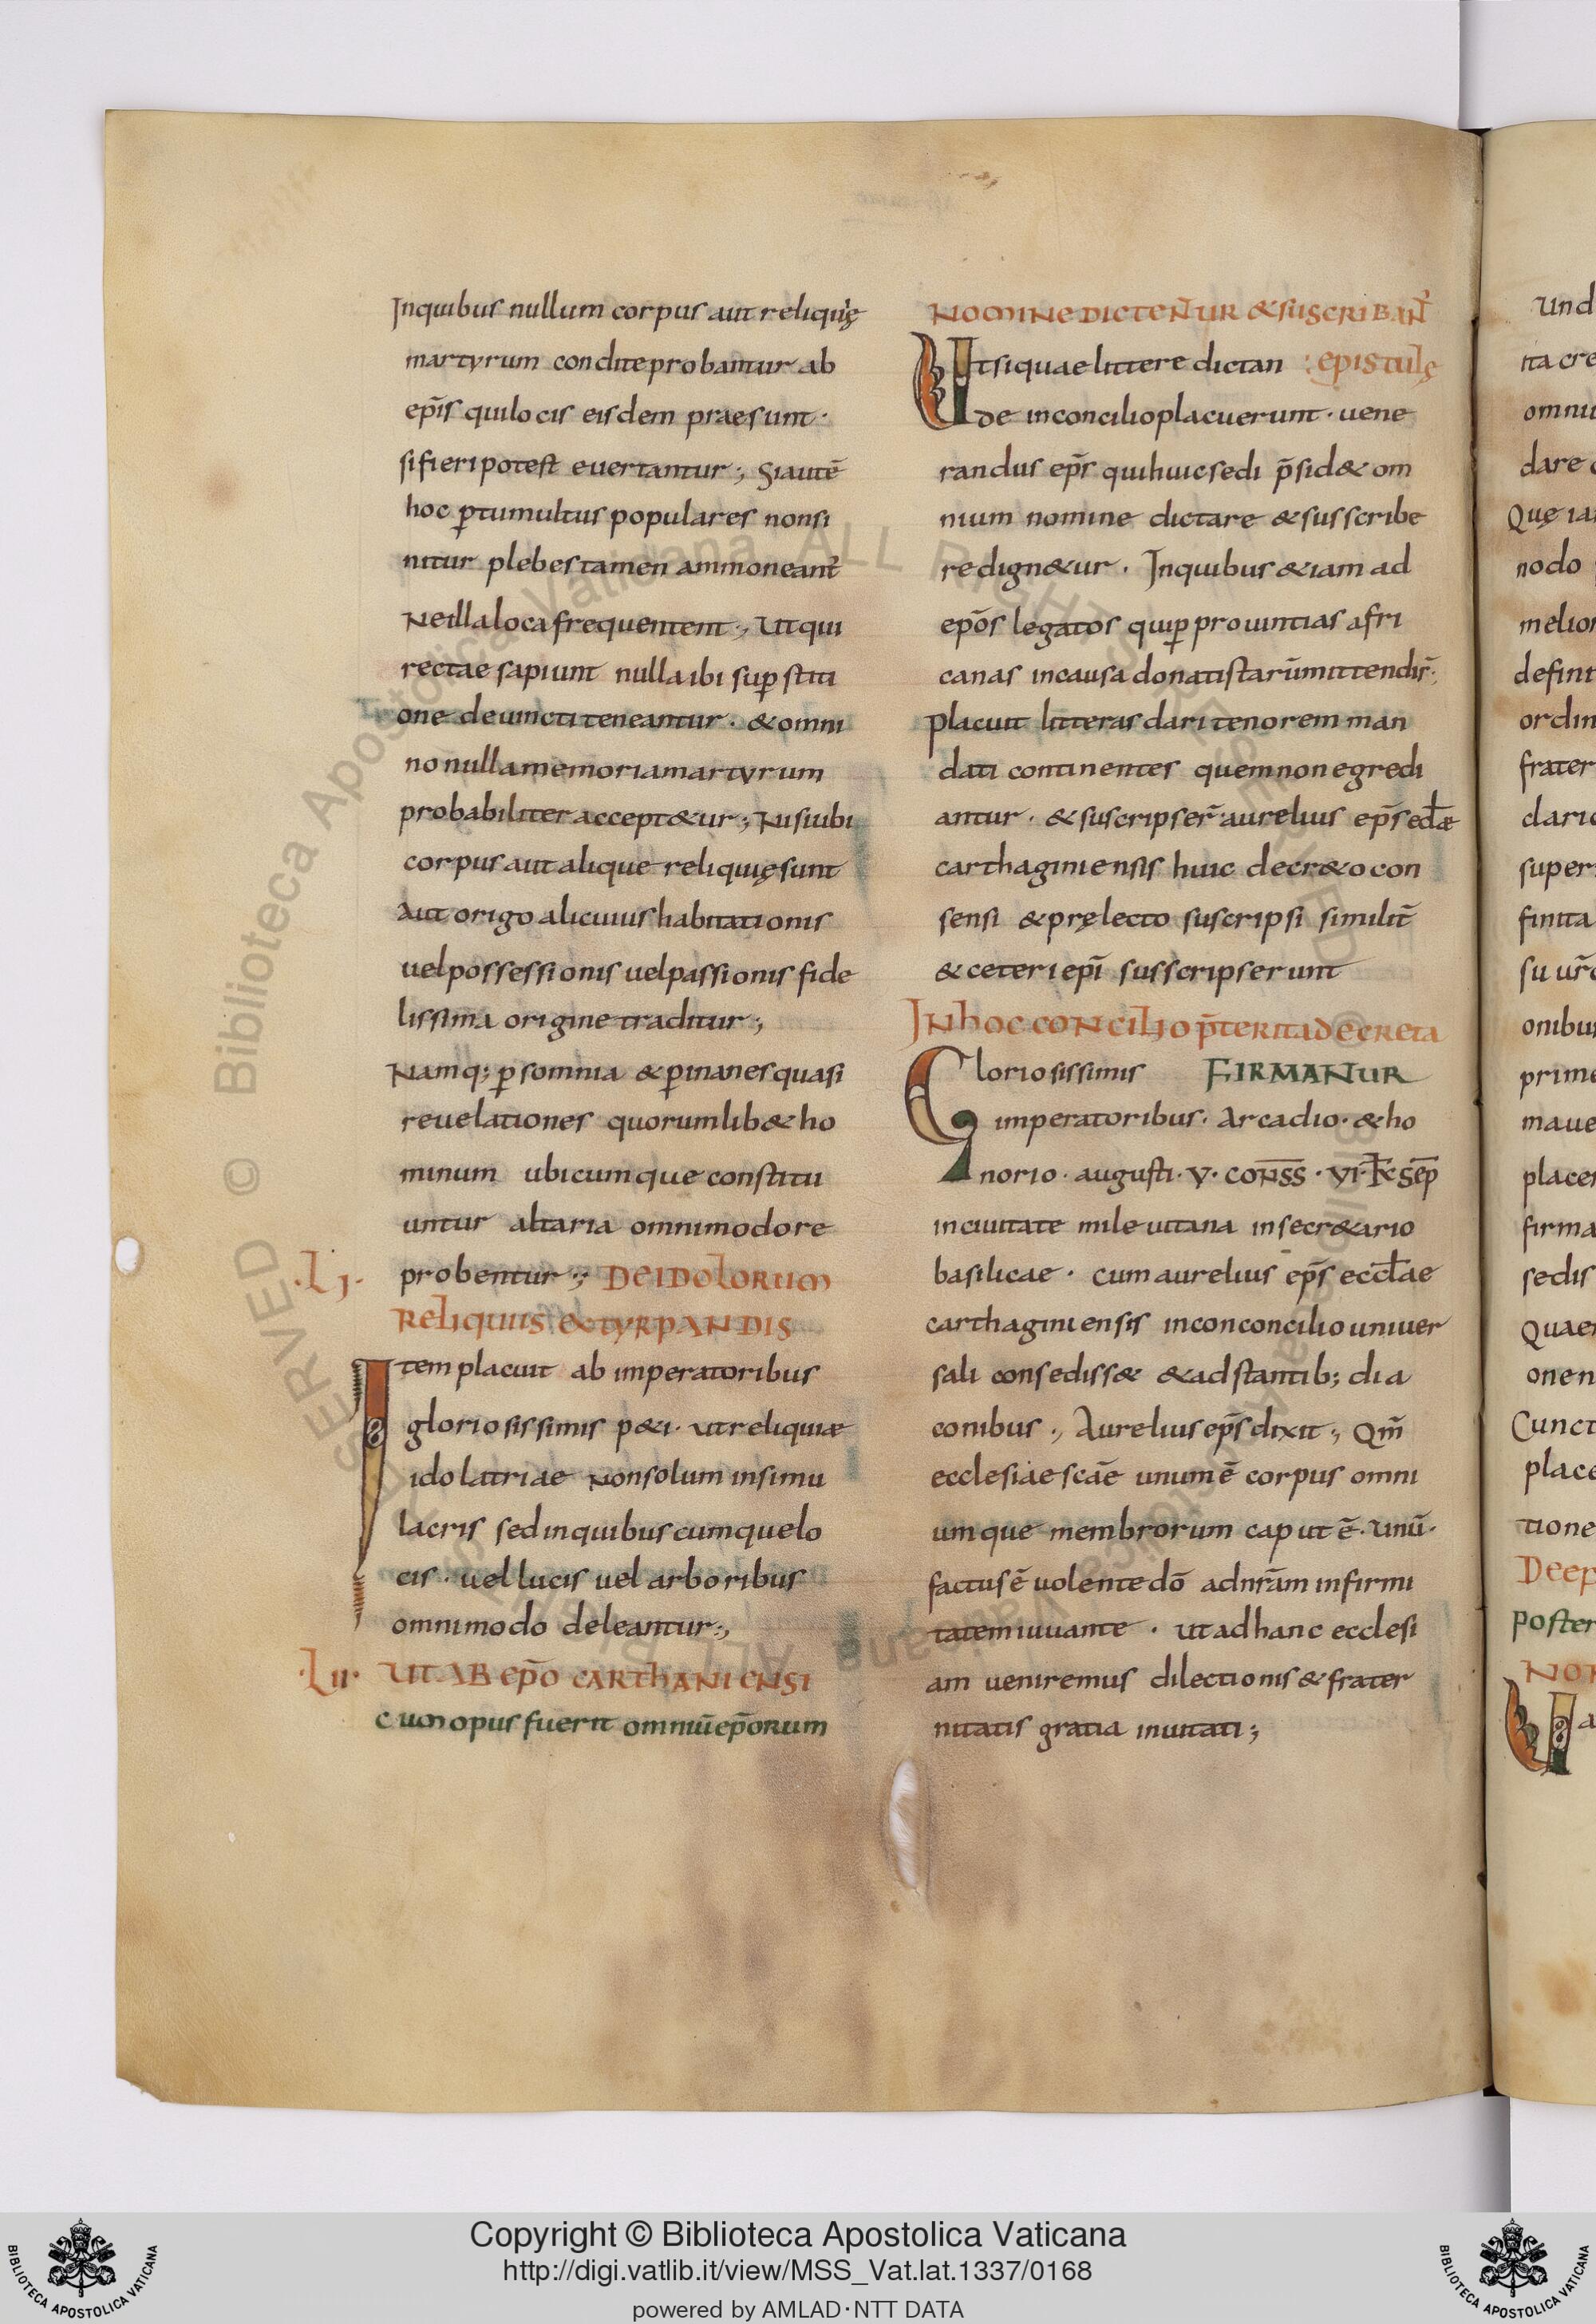 Inquibus nullum corpus aut reliquię
martyrum condite probantur ab
ep̄is qui locis eisdem praesunt ·
si fieri potest evertantur ; Si autē
hoc ꝑ tumultus populares non si
nitur plebes tamen ammoneant̃
Ne illa loca frequentent ; Ut qui
rectae sapiunt nulla ibi suꝑ stiti
one deuincti teneantur · & omni
no nulla memoria martyrum
probabiliter accept&ur ; Nisi ubi
corpus aut alique reliquię sunt
Aut origo alicuius habitationis
uel possessionis uel passionis fide
lissima origine traditur ;
Namq; ꝑ somnia & ꝑ inanes quasi
reuelationes quorumlib& ho
minum ubicumque constitu
untur altaria omnimodo re
probentur ; DE IDOLORUM
·LI· RELIQUIIS EXTYRPANDIS
Item placuit ab imperatoribus
gloriosissimis p&i · ut reliquiæ
idolatriae Non solum in simu
lacris sed in quibuscumque lo
cis · uel lucis uel arboribus
omnimodo deleantur ;
·LII· UT AB EP̄O CARTHANIENSI
CUM opus fuerit omniū ep̄ORUM
NOMINE DICTENTUR & SUSCRIBANT̃
Ut siquae littere dictan : epistulę
de in concilio placuerunt · uene
randus ep̄s qui huic sedi p̄sid& om
nium nomine dictare & susscribe
re dign&ur · In quibus &iam ad
ep̄os legatos qui ꝑ prouintias afri
canas in causa donatistarū mittendis̄ ·
placuit litteras dari tenorem man
dati continentes quem non egredi
antur · & suscripser̄ aurelius ep̄s eccl̄æ
carthaginiensis huic decr&o con
sensi & pręlecto suscripsi similit̄
& ceteri ep̄i susscripserunt
IN hoc CONCILIO p̄TERITA DECRETA
Gloriosissimis FIRMANUR
imperatoribus · Arcadio · & ho
norio · augusti · V · CONSS̄ · VI · K̄ SEP̄
in ciuitate mileuitana in secr&ario
basilicae · cum aurelius ep̄s eccl̄ae
carthaginiensis in conconcilio uniuer
sali consediss& & adstantib; dia
conibus ; Aurelius ep̄s dixit ; Qm̄
ecclesiae scāe unum ē corpus omni
umque membrorum caput ē · unū ·
factus ē uolente dō ad nr̄am infirmi
tatem iuuante · ut ad hanc ecclesi
am ueniremus dilectionis & frater
nitatis gratia inuitati ;
Und
ita cre
omniu
dare
Quę ia
nodo
melior
defini
ordin
frater
claric
super
finita
su ur̄
onibu
prime
maue
place
firma
sedis
Quae
onen
Cunct
place
tione
Deep
poster
NON
Copyright © Biblioteca Apostolica Vaticana
http://digi.vatlib.it/view/MSS_Vat.lat.1337/0168
powered by AMLAD·NTT DATA
BIBLIOTECA APOSTOLICA VATICANA
BIBLIOTECA APOSTOLICA VATICANA